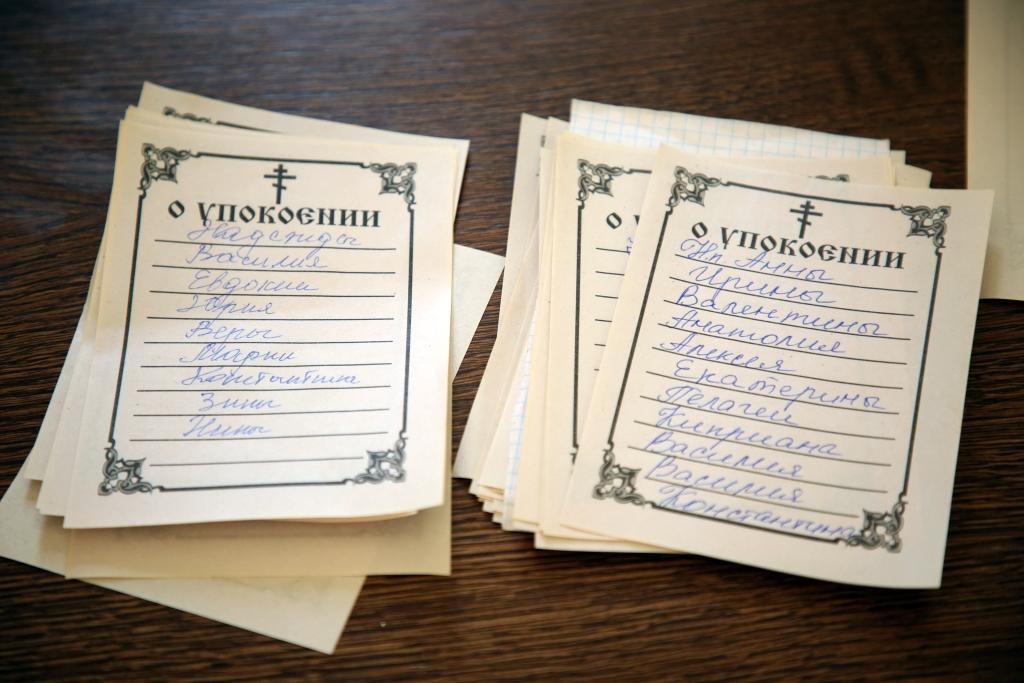 о упокоении
Надежды
Василия
Евдокии
Юрия
Веры
Марии
Константина
Зины
Нины
о упокоении
Нп Анны
Ирины
Валентины
Анатолия
Алексея
Екатерины
Пелагеи
Киприана
Василия
Василия
Константина